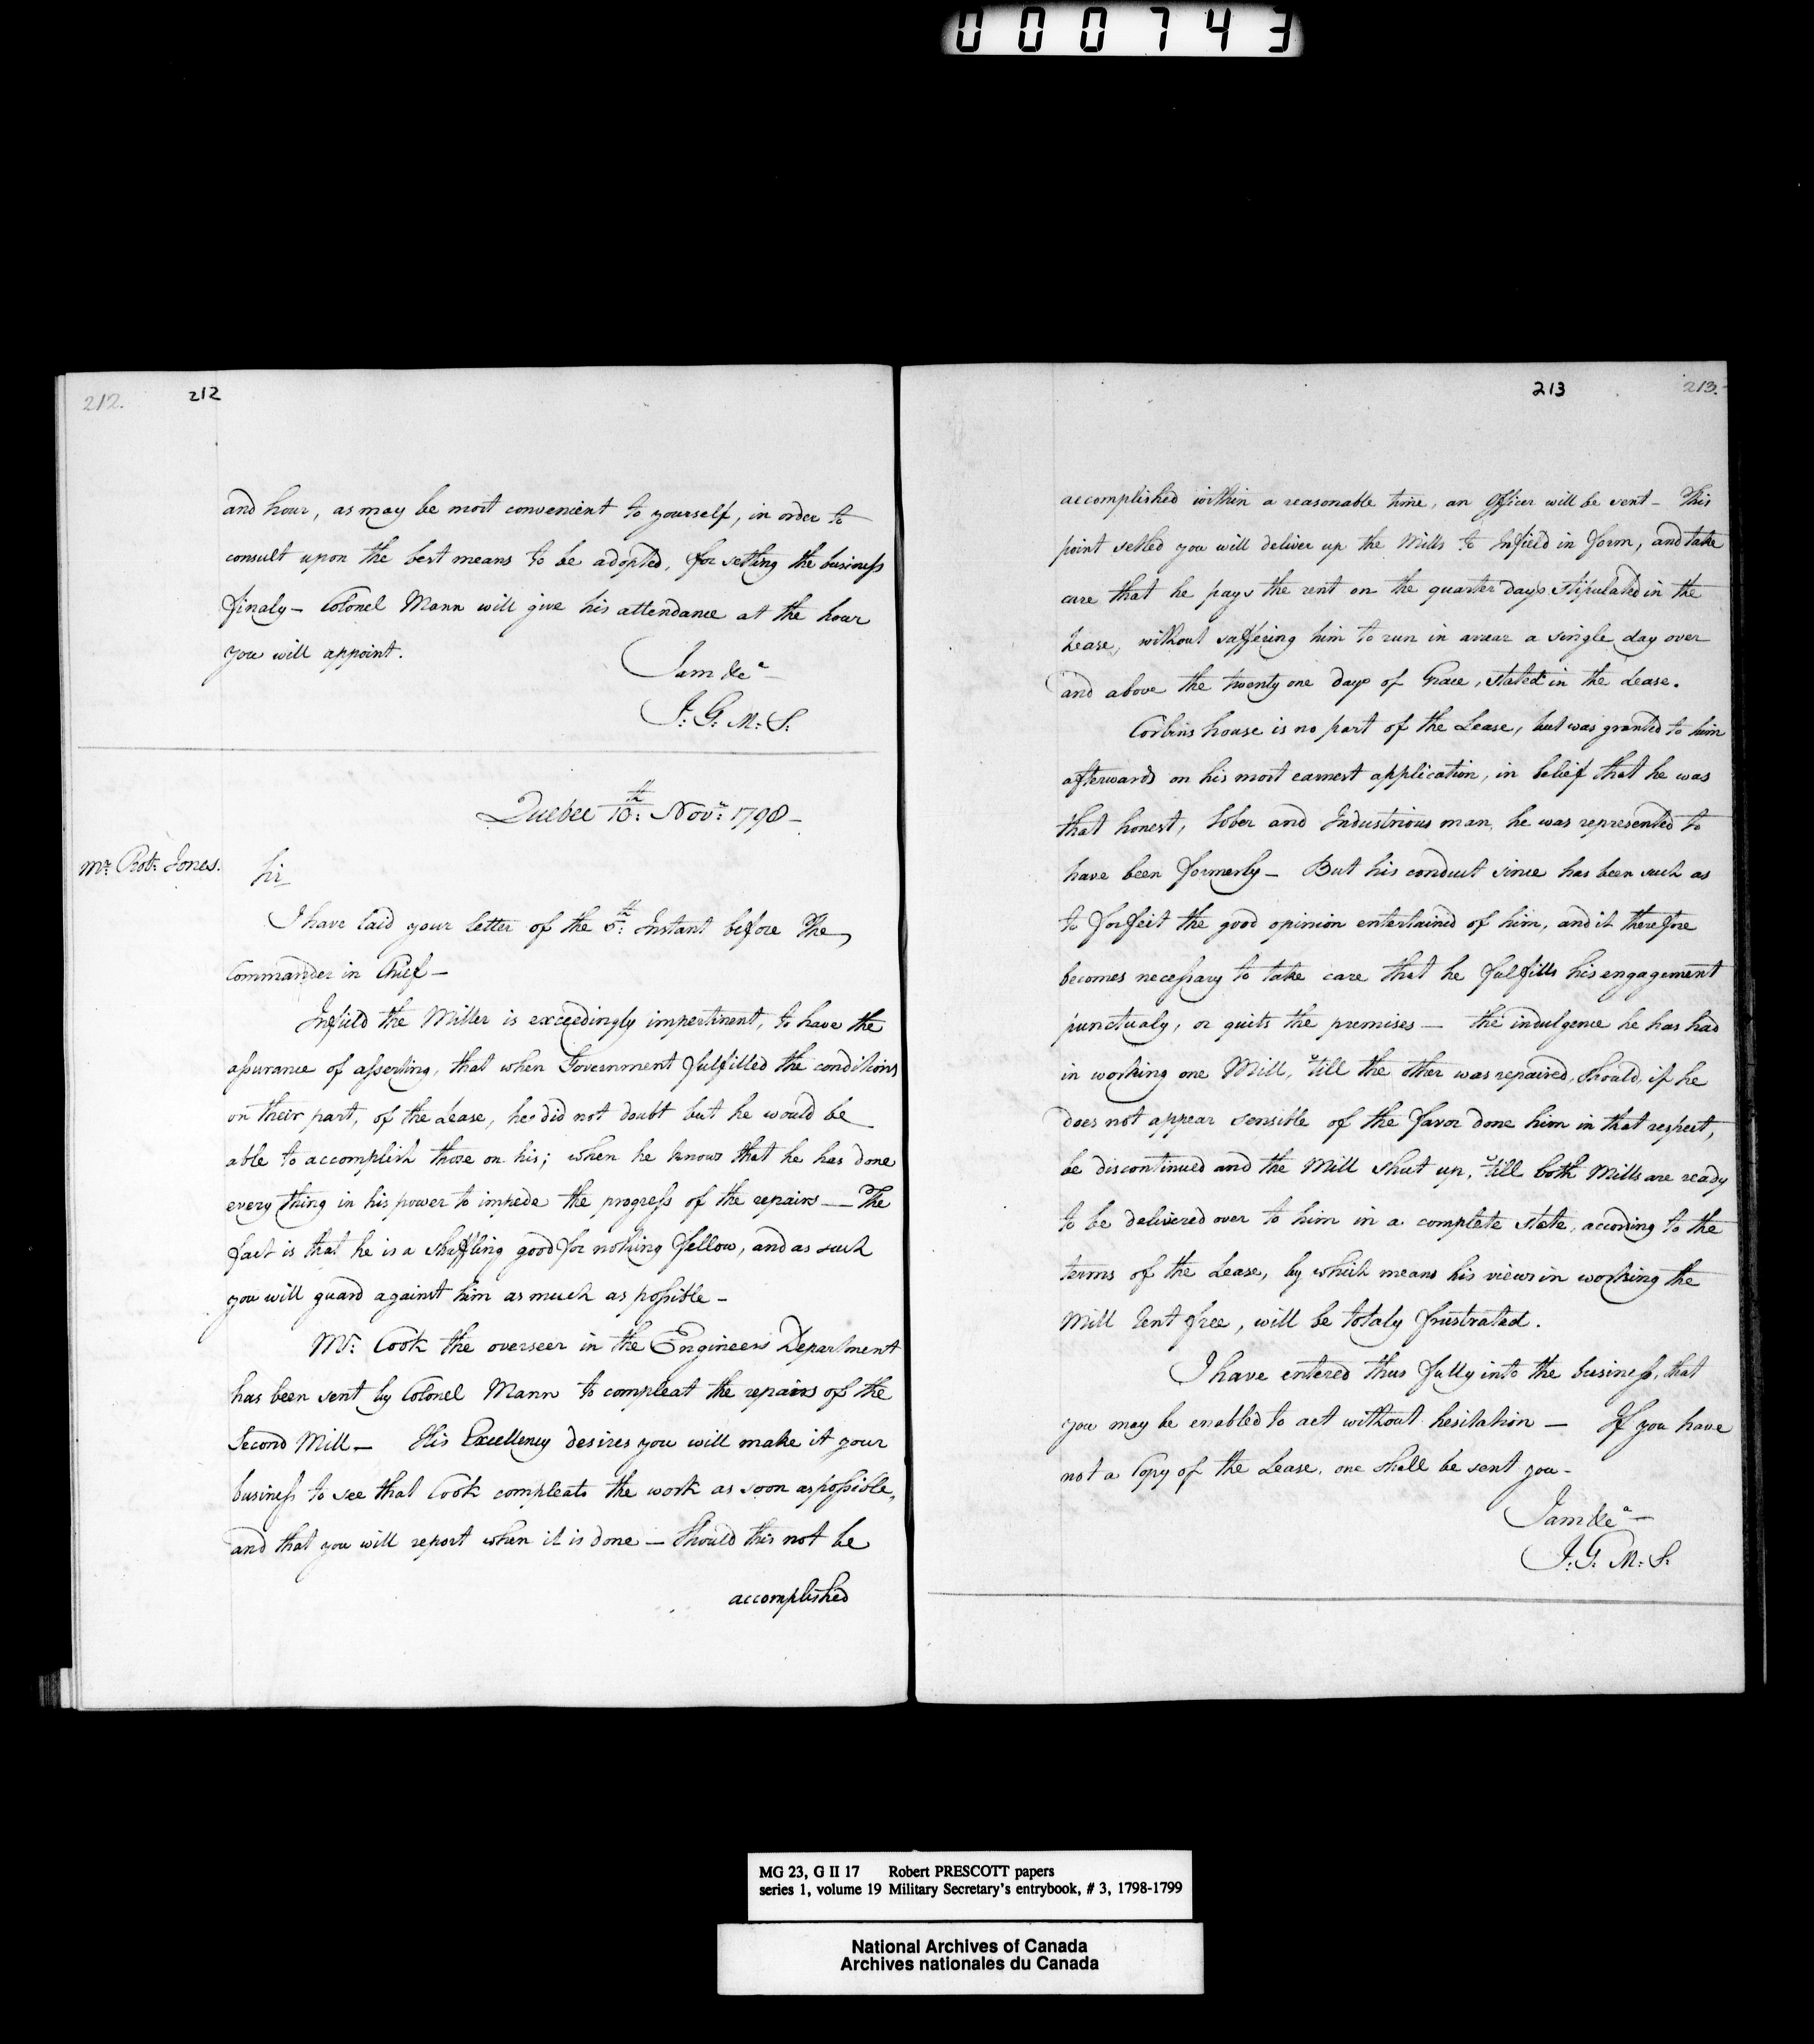 000743
212. 212
and hour, as may be most convenient to yourself, in order to
consult upon the best means to be adopted, for setling the business
finaly - Colonel Mann will give his attendance at the hour
you will appoint.
I am &ca
J. G. M. S.
Quebec 10th Novr 1798 -
Mr. Robt. Jones.
Sir
I have laid your letter of the 5th Instant before The
Commander in Chief -
Enfield the Miller is exceedingly impertinent, to have the
assurance of asserting, that when Government fulfilled the conditions
on their part, of the Lease, he did not doubt but he would be
able to accomplish those on his; when he knows that he has done
every thing in his power to impede the progress of the repairs - The
fact is that he is a shuffling good for nothing fellow, and as such
you will guard against him as much as possible -
Mr. Cook the overseer in the Engineers Department
has been sent by Colonel Mann to compleat the repairs of the
Second Mill - His Excellency desires you will make it your
business to see that Cook compleats the work as soon as possible,
and that you will report when it is done - Should this not be
accomplished
213 213.
accomplished within a reasonable time, an Officer will be sent - This
point setled you will deliver up the Mills to Enfield in form, and take
care that he pays the rent on the quarter days stipulated in the
Lease, without suffering him to run in arrear a single day over
and above the twenty one days of Grace, stated in the Lease.
Corbins house is no part of the Lease, but was granted to him
afterwards on his most earnest application, in belief that he was
that honest, Sober and Industrious man, he was represented to
have been formerly - But his conduct since has been such as
to forfeit the good opinion entertained of him, and it therefore
becomes necessary to take care that he fulfills his engagement
punctualy, or quits the premises - the indulgence he has had
in working one Mill, 'till the other was repaired, should, if he
does not appear sensible of the favor done him in that respect,
be discontinued and the Mill shut up, 'till both Mills are ready
to be delivered over to him in a complete state, according to the
terms of the Lease, by which means his views in working the
Mill rent free, will be totaly frustrated.
I have entered thus fully into the business, that
you may be enabled to act without hesitation - If you have
not a Copy of the Lease, one shall be sent you -
I am &ca -
J. G. M. S.
MG 23, G II 17 Robert PRESCOTT papers
series 1, volume 19 Military Secretary's entrybook, # 3, 1798-1799
National Archives of Canada
Archives nationales du Canada